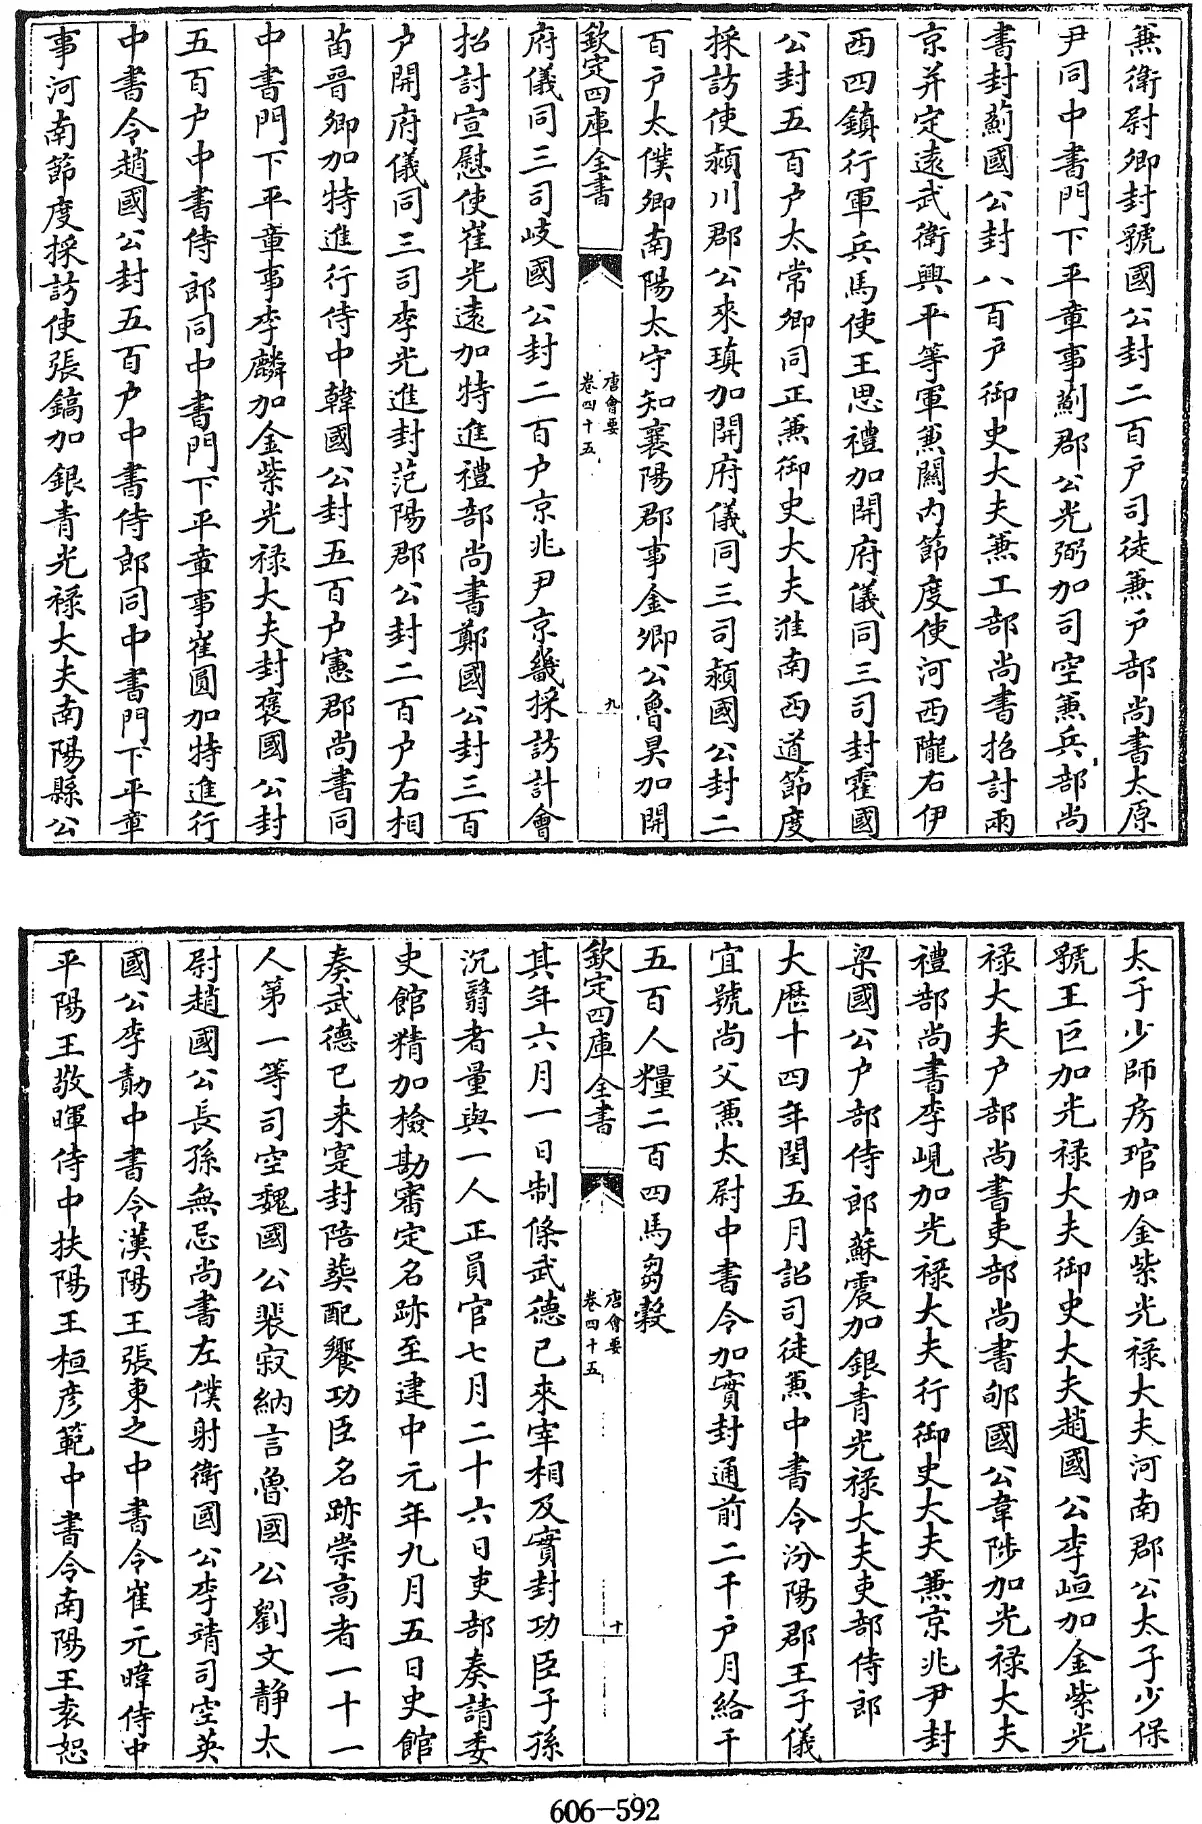 兼衛尉卿封虢國公封二百戸司徒兼戸部尚書太原
尹同中書門下平章事薊郡公光弼加司空兼兵部尚
書封薊國公封八百戸御史大夫兼工部尚書招討兩
京并定遠武衛興平等軍兼關内節度使河西隴右伊
西四鎮行軍兵馬使王思禮加開府儀同三司封霍國
公封五百户太常卿同正兼御史大夫淮南西道節度
採訪使潁川郡公來瑱加開府儀同三司潁國公封二
百户太僕卿南陽太守知襄陽郡事金卿公魯炅加開
欽定四庫全書
唐會要
卷四十五
九
府儀同三司岐國公封二百户京兆尹京畿採訪計會
招討宣慰使崔光遠加特進禮部尚書鄭國公封三百
户開府儀同三司李光進封范陽郡公封二百户右相
苗晉卿加特進行侍中韓國公封五百户憲部尚書同
中書門下平章事李麟加金紫光禄大夫封褒國公封
五百户中書侍郎同中書門下平章事崔圓加特進行
中書令趙國公封五百户中書侍郎同中書門下平章
事河南節度採訪使張鎬加銀青光禄大夫南陽縣公
太子少師房琯加金紫光禄大夫河南郡公太子少保
虢王巨加光禄大夫御史大夫趙國公李峘加金紫光
禄大夫户部尚書吏部尚書郇國公韋陟加光禄大夫
禮部尚書李峴加光禄大夫行御史大夫兼京兆尹封
梁國公户部侍郎蘇震加銀青光禄大夫吏部侍郎
大厯十四年閏五月詔司徒兼中書令汾陽郡王子儀
宜號尚父兼太尉中書令加實封通前二千戸月給千
五百人糧二百四馬芻穀
欽定四庫全書
唐會要
卷四十五
十
其年六月一日制條武德已來宰相及實封功臣子孫
沉翳者量與一人正員官七月二十六日吏部奏請委
史館精加檢勘審定名跡至建中元年九月五日史館
奏武德已来寔封陪葬配饗功臣名跡崇高者一十一
人第一等司空魏國公裴寂納言魯國公劉文静太
尉趙國公長孫無忌尚書左僕射衛國公李靖司空英
國公李勣中書令漢陽王張柬之中書令崔元暐侍中
平陽王敬暉侍中扶陽王桓彦範中書令南陽王袁恕
606-592